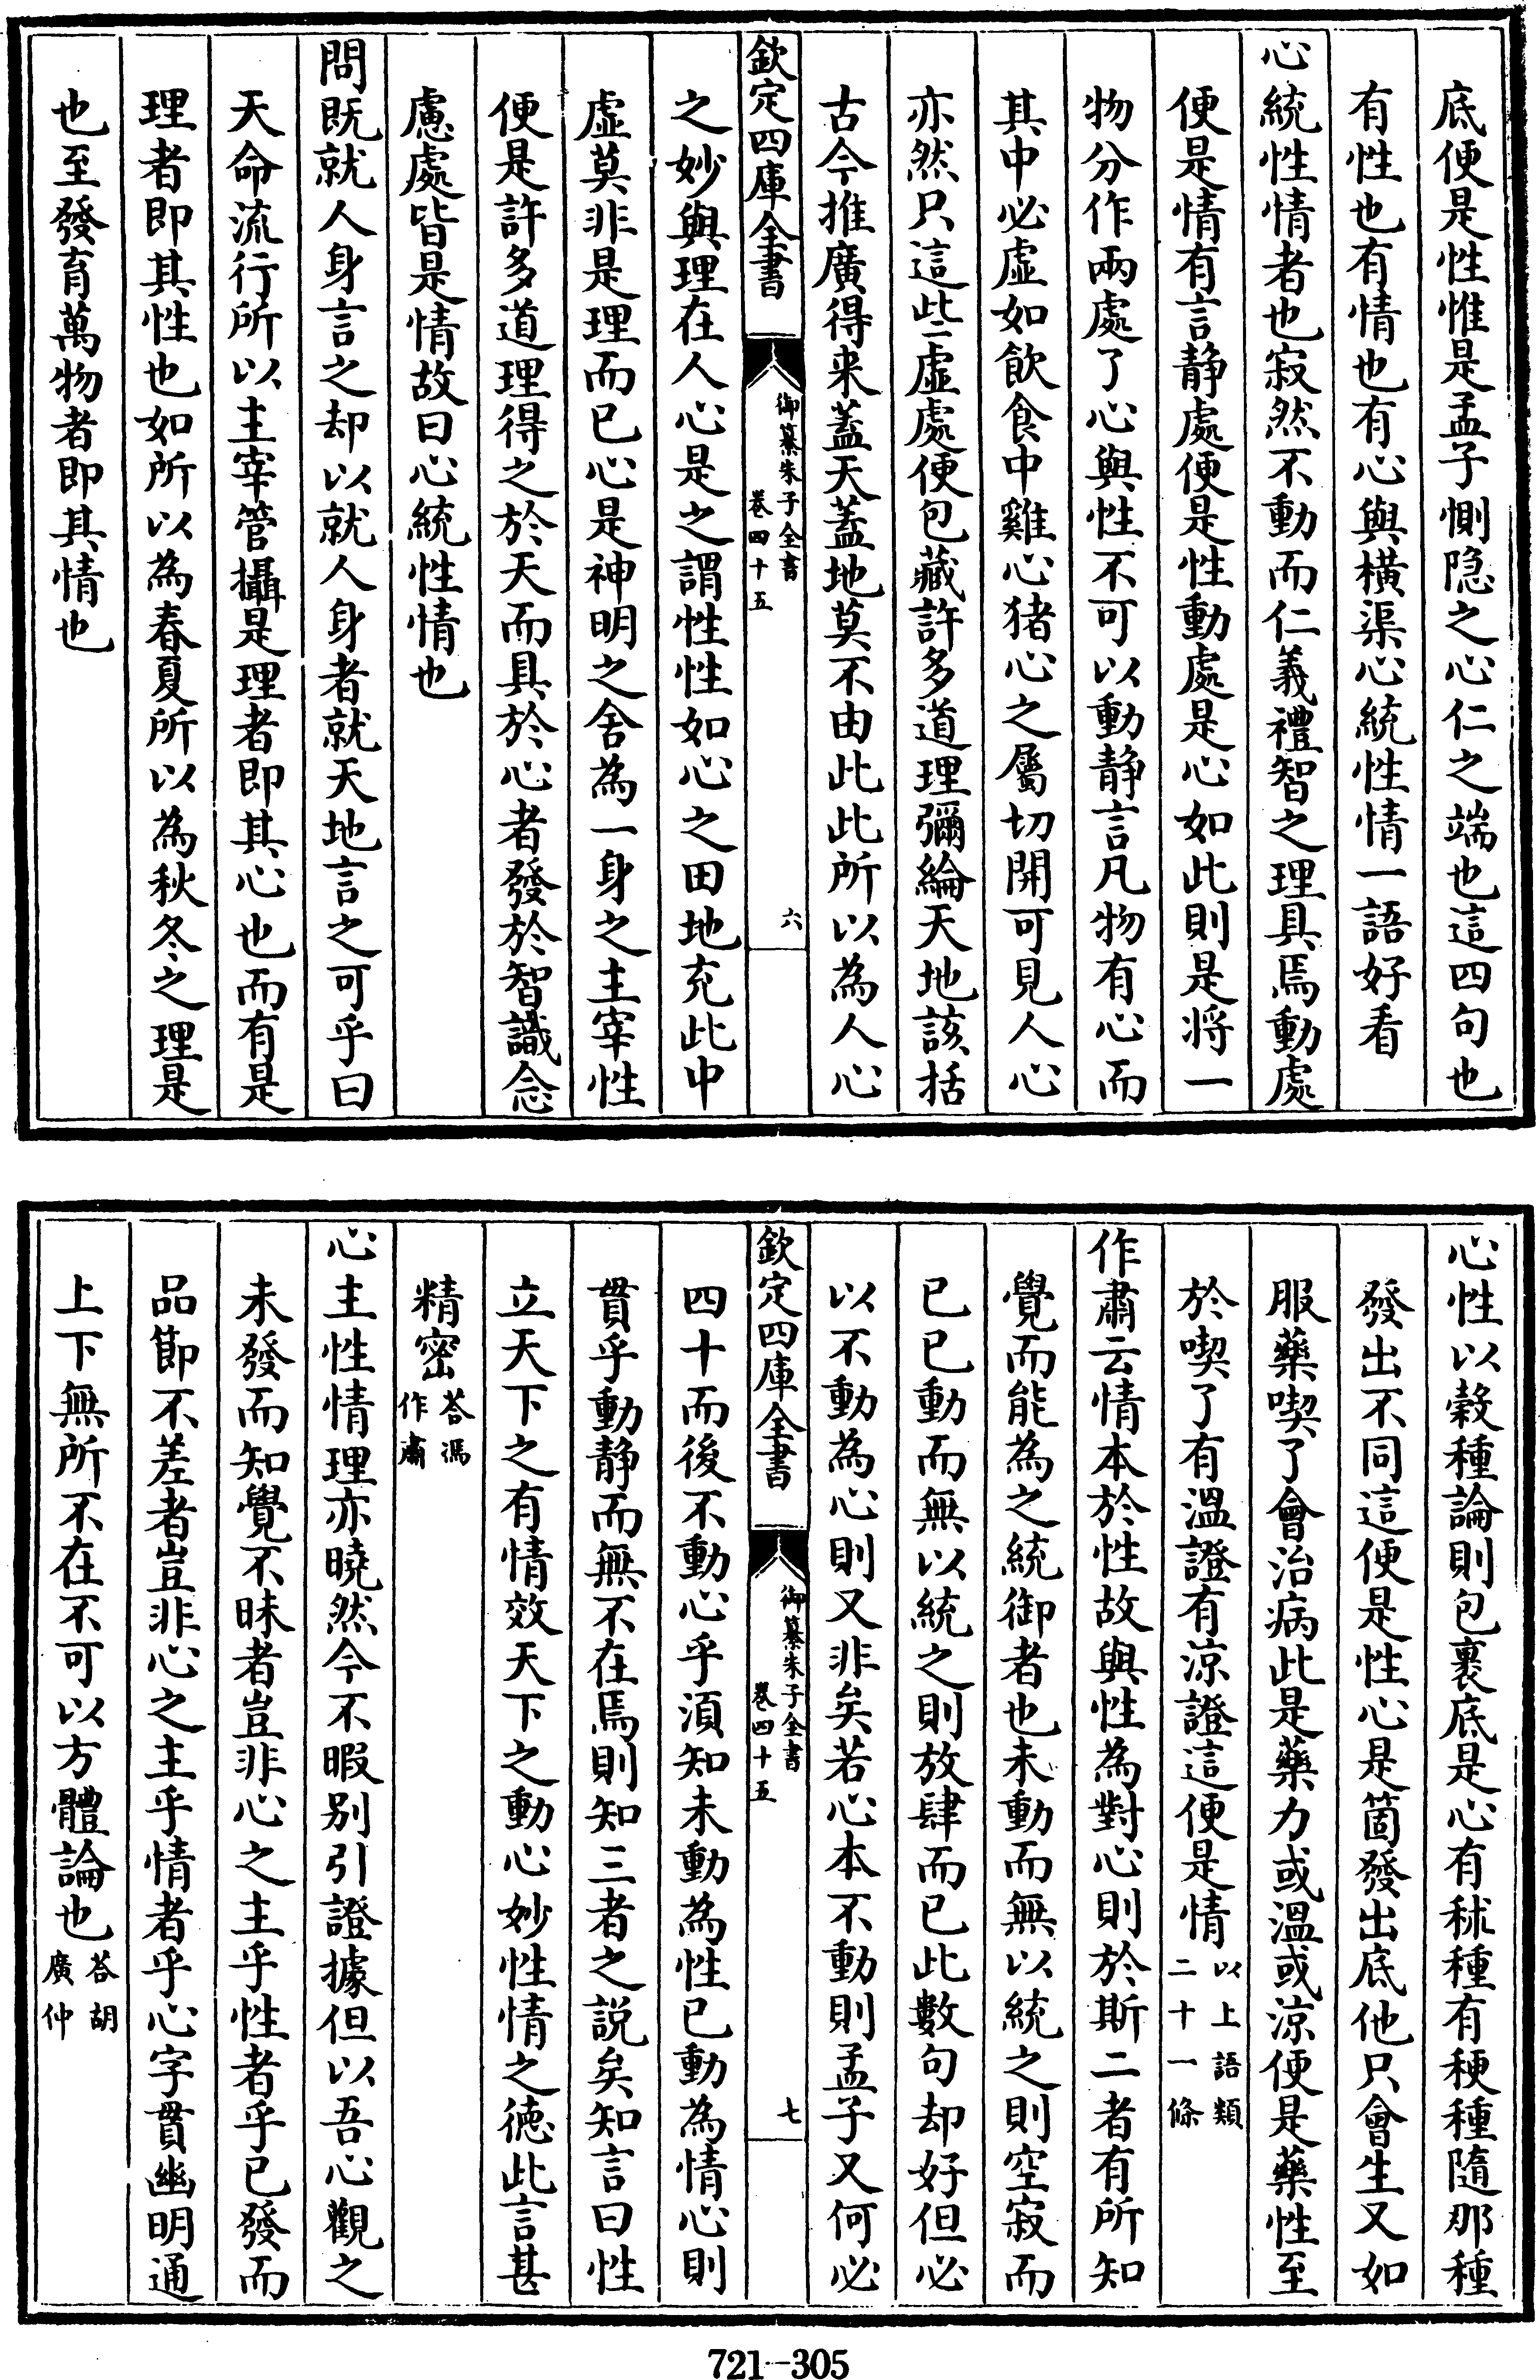 底便是性惟是孟子惻隐之心仁之端也這四句也
有性也有情也有心與橫渠心統性情一語好看
心統性情者也寂然不動而仁義禮智之理具焉動處
便是情有言静處便是性動處是心如此則是将一
物分作兩處了心與性不可以動静言凡物有心而
其中必虛如飲食中雞心猪心之屬切開可見人心
亦然只這些虛處便包藏許多道理彌綸天地該括
古今推廣得來蓋天蓋地莫不由此此所以為人心
欽定四庫全書
御纂朱子全書
卷四十五
六
之妙與理在人心是之謂性性如心之田地充此中
虛莫非是理而已心是神明之舍為一身之主宰性
便是許多道理得之於天而具於心者發於智識念
慮處皆是情故曰心統性情也
問既就人身言之却以就人身者就天地言之可乎曰
天命流行所以主宰管攝是理者即其心也而有是
理者即其性也如所以為春夏所以為秋冬之理是
也至發育萬物者即其情也
心性以穀種論則包裹底是心有秫種有稉種隨那種
發出不同這便是性心是箇發出底他只會生又如
服藥喫了會治病此是藥力或溫或涼便是藥性至
於喫了有溫證有涼證這便是情以上語類二十一條
作肅云情本於性故與性為對心則於斯二者有所知
覺而能為之統御者也未動而無以統之則空寂而
已已動而無以統之則放肆而已此數句却好但必
以不動為心則又非矣若心本不動則孟子又何必
欽定四庫全書
御纂朱子全書
卷四十五
七
四十而後不動心乎須知未動為性已動為情心則
貫乎動静而無不在焉則知三者之說矣知言曰性
立天下之有情效天下之動心妙性情之徳此言甚
精密答馮作肅
心主性情理亦曉然今不暇别引證據但以吾心觀之
未發而知覺不昧者豈非心之主乎性者乎已發而
品節不差者豈非心之主乎情者乎心字貫幽明通
上下無所不在不可以方體論也答胡廣仲
721-305